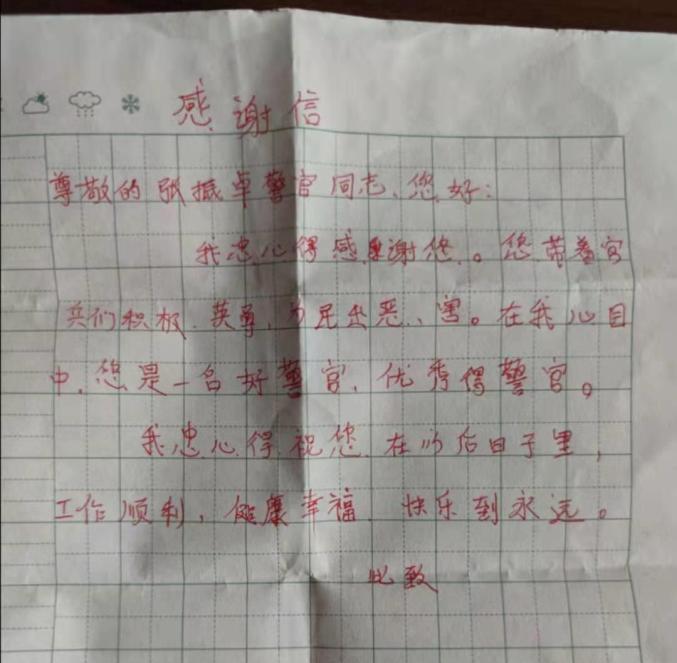 感谢信
尊敬的张振卓警官同志、您好：
我忠心得感谢您.。您带着官
兵们积极、英勇、为民出恶、害。在我心目
中、您是一名好警官、优秀得警官。
我忠心得祝您、在以后日子里，
工作顺利，健康幸福、快乐到永远。
此致